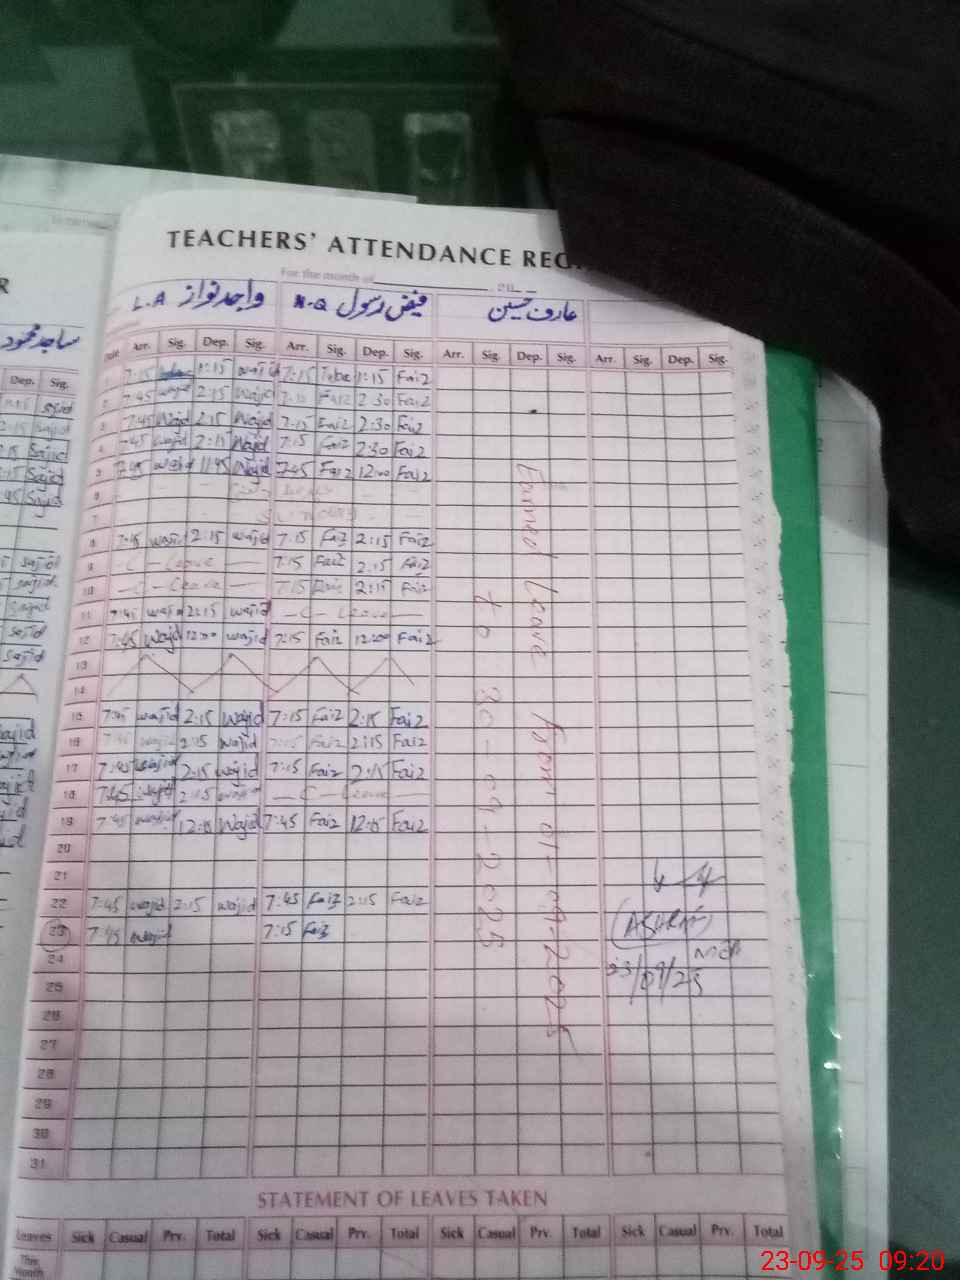 R
TEACHERS' ATTENDANCE REG
For the month of
واجد نواز L.A
فیض رسول N.Q
عارف حسین
ساجد محمود
Dep. Sig.
Date Arr. Sig. Dep. Sig. Arr. Sig. Dep. Sig. Arr. Sig. Dep. Sig. Arr. Sig. Dep. Sig.
1 7:15 1:15 wajid 7:15 1:15 Faiz
2 7:45 wajid 2:15 Wajid 7:15 Faiz 2:30 Faiz
3 7:45 Wajid 2:15 Wajid 7:15 Faiz 2:30 Faiz
4 7:45 Wajid 2:15 Wajid 7:15 Faiz 2:30 Faiz
5 7:45 wajid 11:45 Wajid 7:45 Faiz 12:00 Faiz
6
7 Sunday
8 7:45 wajid 2:15 wajid 7:15 Faiz 2:15 Faiz
9 -C- Leave 7:15 Faiz 2:15 Faiz
10 -C- Leave 7:15 Faiz 2:15 Faiz
11 7:45 wajid 2:15 wajid -C- Leave
12 7:45 Wajid 12:00 wajid 7:15 Faiz 12:00 Faiz
13
14
15 7:45 wajid 2:15 Wajid 7:15 Faiz 2:15 Faiz
16 7:45 Wajid 2:15 Wajid 7:15 Faiz 2:15 Faiz
17 7:45 Wajid 2:15 Wajid 7:15 Faiz 2:15 Faiz
18 7:45 Wajid 2:15 Wajid -C- Leave
19 7:45 Wajid 12:15 Wajid 7:45 Faiz 12:15 Faiz
20
21
22 7:45 wajid 2:15 wajid 7:45 Faiz 2:15 Faiz
23 7:45 Wajid 7:15 Faiz
24
25
26
27
28
29
30
31
Earned Leave from 01-09-2025
to 30-09-2025
(ASHRAF)
MEA
23/09/25
STATEMENT OF LEAVES TAKEN
Leaves Sick Casual Prv. Total Sick Casual Prv. Total Sick Casual Prv. Total Sick Casual Prv. Total
This Month
23-09-25 09:20